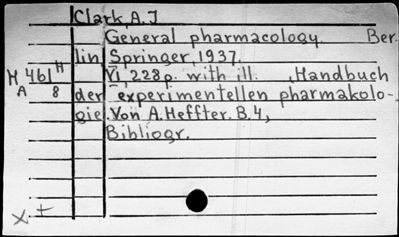 Clark, A. J
General pharmacology Ber
lin, Springer, 1937.
VI, 228 p. with ill. , Handbuch
der experimentellen pharmakolo-
gie. Von A. Heffter. B. 4,
Bibliogr.
M 461 H
A 8
x +